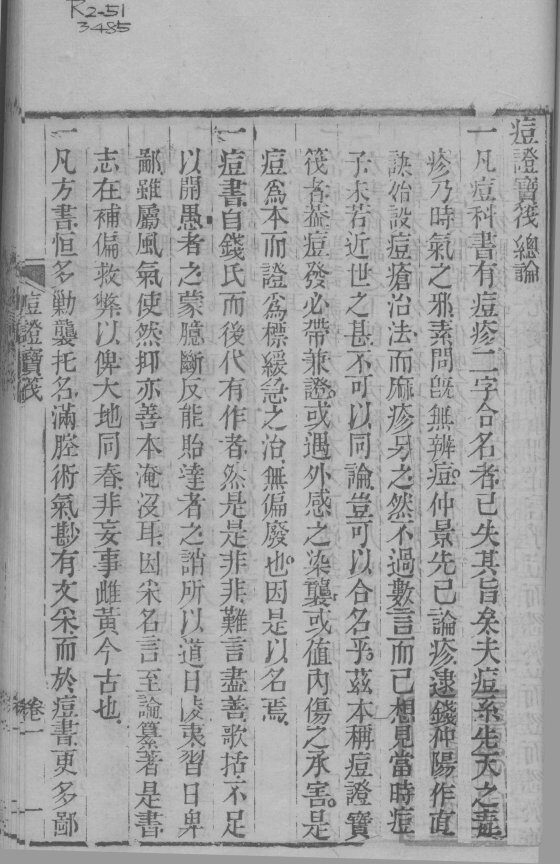 R2-51
3485
痘證寶筏總論
一凡痘科書有痘疹二字合名者已失其旨矣夫痘系先天之毒
疹乃時氣之邪素問旣無辨痘仲景先已論疹逮錢仲陽作直
訣始設痘瘡治法而麻疹另之然不過數言而已想見當時痘
子未若近世之甚不可以同論豈可以合名乎茲本稱痘證寶
筏者蓋痘發必帶兼證或遇外感之染襲或值內傷之承害是
痘爲本而證爲標緩急之治無偏廢也因是以名焉
一痘書自錢氏而後代有作者然是是非非難言盡善歌括不足
以開愚者之蒙臆斷反能貽達者之誚所以道日陵夷習日卑
鄙雖屬風氣使然抑亦善本淹沒耳因采名言至論纂著是書
志在補偏救弊以俾大地同春非妄事雌黃今古也
一凡方書恒多勦襲托名滿腔術氣尠有文采而於痘書更多鄙
痘證寶筏
卷一
一